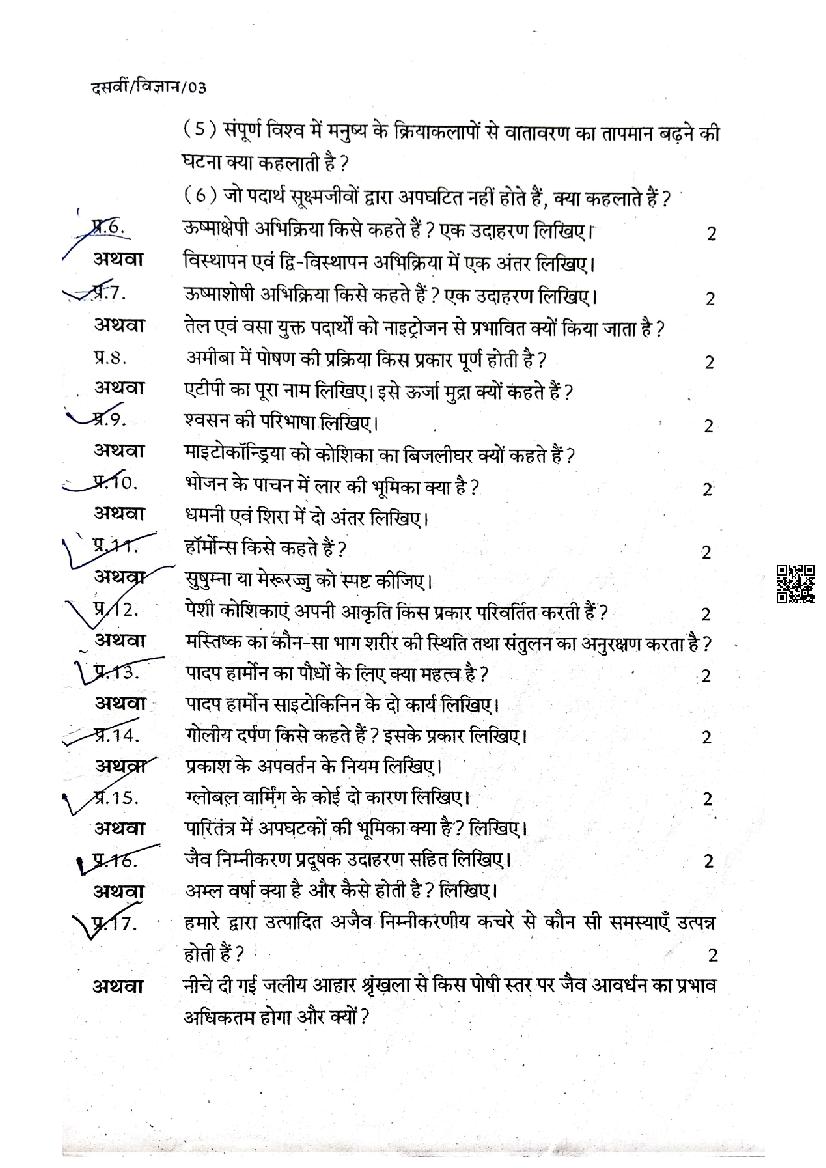 दसवीं/विज्ञान/03
(5) संपूर्ण विश्व में मनुष्य के क्रियाकलापों से वातावरण का तापमान बढ़ने की
घटना क्या कहलाती है?
(6) जो पदार्थ सूक्ष्मजीवों द्वारा अपघटित नहीं होते हैं, क्या कहलाते हैं?
प्र.6. ऊष्माक्षेपी अभिक्रिया किसे कहते हैं? एक उदाहरण लिखिए। 2
अथवा विस्थापन एवं द्वि-विस्थापन अभिक्रिया में एक अंतर लिखिए।
प्र.7. ऊष्माशोषी अभिक्रिया किसे कहते हैं? एक उदाहरण लिखिए। 2
अथवा तेल एवं वसा युक्त पदार्थों को नाइट्रोजन से प्रभावित क्यों किया जाता है?
प्र.8. अमीबा में पोषण की प्रक्रिया किस प्रकार पूर्ण होती है? 2
अथवा एटीपी का पूरा नाम लिखिए। इसे ऊर्जा मुद्रा क्यों कहते हैं?
प्र.9. श्वसन की परिभाषा लिखिए। 2
अथवा माइटोकॉन्ड्रिया को कोशिका का बिजलीघर क्यों कहते हैं?
प्र.10. भोजन के पाचन में लार की भूमिका क्या है? 2
अथवा धमनी एवं शिरा में दो अंतर लिखिए।
प्र.11. हॉर्मोन्स किसे कहते हैं? 2
अथवा सुषुम्ना या मेरूरज्जु को स्पष्ट कीजिए।
प्र.12. पेशी कोशिकाएं अपनी आकृति किस प्रकार परिवर्तित करती हैं? 2
अथवा मस्तिष्क का कौन-सा भाग शरीर की स्थिति तथा संतुलन का अनुरक्षण करता है?
प्र.13. पादप हार्मोन का पौधों के लिए क्या महत्व है? 2
अथवा पादप हार्मोन साइटोकिनिन के दो कार्य लिखिए।
प्र.14. गोलीय दर्पण किसे कहते हैं? इसके प्रकार लिखिए। 2
अथवा प्रकाश के अपवर्तन के नियम लिखिए।
प्र.15. ग्लोबल वार्मिंग के कोई दो कारण लिखिए। 2
अथवा पारितंत्र में अपघटकों की भूमिका क्या है? लिखिए।
प्र.16. जैव निम्नीकरण प्रदूषक उदाहरण सहित लिखिए। 2
अथवा अम्ल वर्षा क्या है और कैसे होती है? लिखिए।
प्र.17. हमारे द्वारा उत्पादित अजैव निम्नीकरणीय कचरे से कौन सी समस्याएँ उत्पन्न
होती हैं? 2
अथवा नीचे दी गई जलीय आहार श्रृंखला से किस पोषी स्तर पर जैव आवर्धन का प्रभाव
अधिकतम होगा और क्यों?